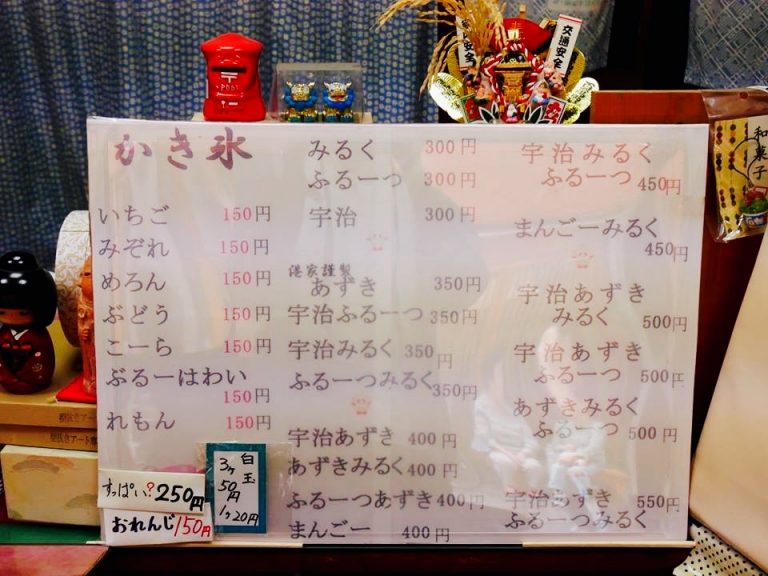 かき氷
いちご 150円
みぞれ 150円
めろん 150円
ぶどう 150円
こーら 150円
ぶるーはわい
150円
れもん 150円
すっぱい?250円
おれんじ150円
白玉
3ヶ50円
1ヶ20円
みるく 300円
ふるーつ 300円
宇治 300円
港家謹製
あずき 350円
宇治ふるーつ 350円
宇治みるく 350円
ふるーつみるく350円
宇治あずき 400円
あずきみるく 400円
ふるーつあずき400円
まんごー 400円
宇治みるく
ふるーつ 450円
まんごーみるく
450円
宇治あずき
みるく 500円
宇治あずき
ふるーつ 500円
あずきみるく
ふるーつ 500円
宇治あずき 550円
ふるーつみるく
POST
交通安全
交通安全
和菓子